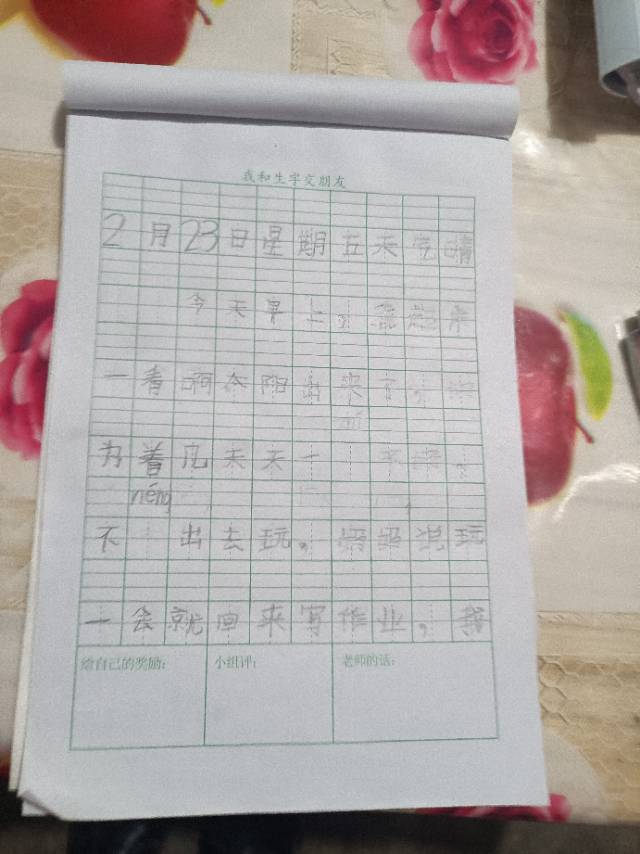 我和生字交朋友
2月23日星期五天气晴
今天早上，我起来
一看啊太阳出来了，
着几天天
néng
不 出去玩。妈妈说玩
一会就回来写作业，我
给自己的奖励：
小组评：
老师的话：